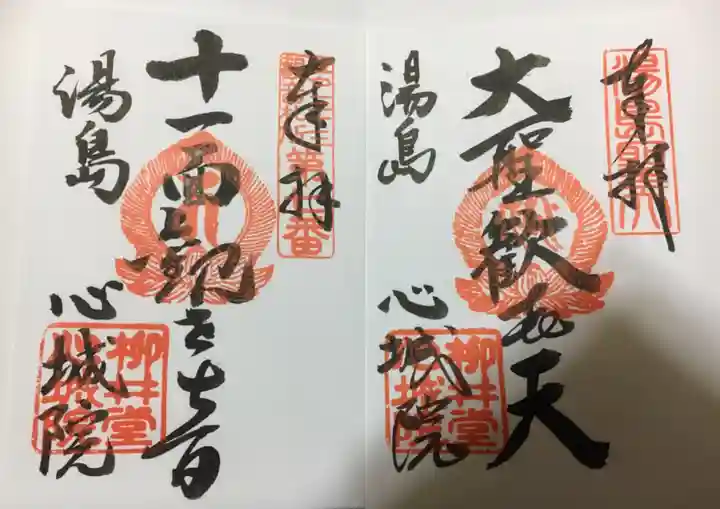 奉拝
大聖歓喜天
湯島
心城院
柳井堂
心城院
奉拝
十一面観世音
湯島
心城院
柳井堂
心城院